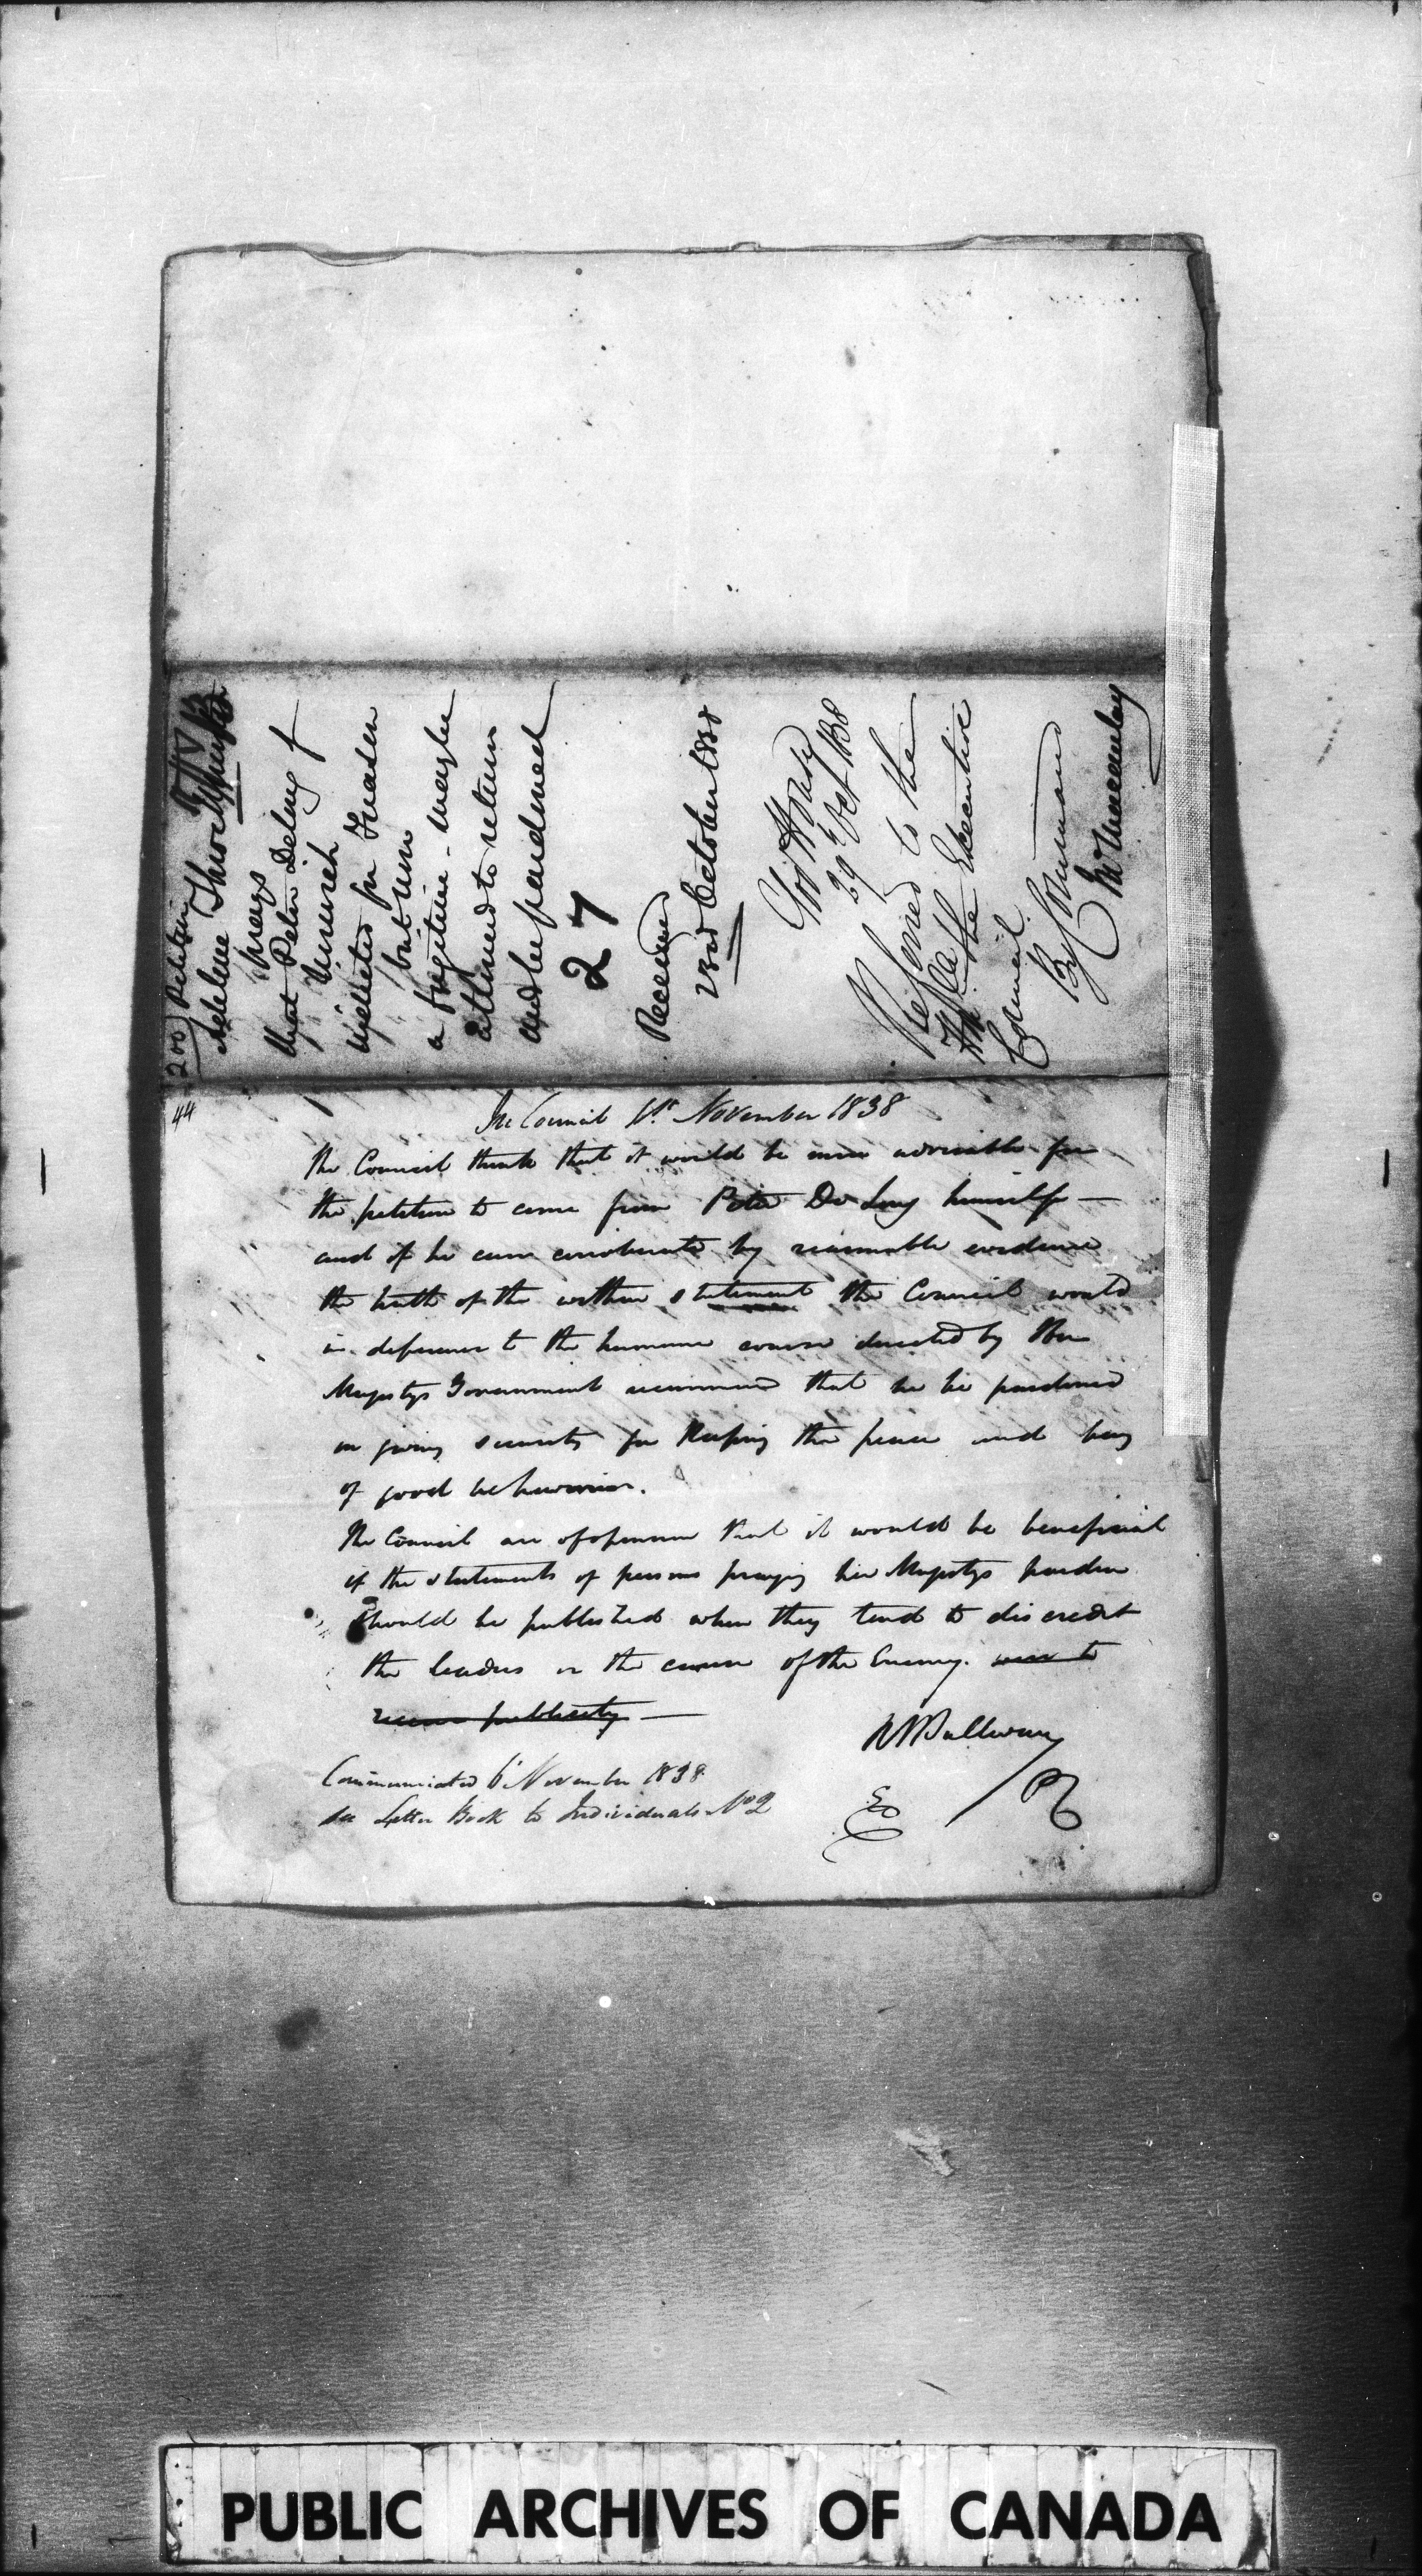 200 Petition
Adeline
prays
that Peter Delong of
Norwich
indicted for Treason
but now
a fugitive - may be
allowed to return
and be pardoned
27
Received
23rd October 1838
Govt House
29 Oct 1838
Referred to the
Honble the Executive
Council.
By Command
Macaulay
44
In Council 1st November 1838
The Council think that it would be more advisable for
the petition to come from Peter De Long himself —
and if he can corroborate by reasonable evidence
the truth of the within statement the Council would
in deference to the humane course directed by Her
Majestys Government recommend that he be pardoned
on giving security for Keeping the peace and being
of good behaviour.
The Council are of opinion that it would be beneficial
if the statements of persons praying her Majestys pardon
should be published when they tend to discredit
the leaders or the cause of the Enemy. were to
receive publicity —
RBSullivan
PC
Communicated 6 November 1838
See Letter Book to Individuals No 2
PUBLIC ARCHIVES OF CANADA